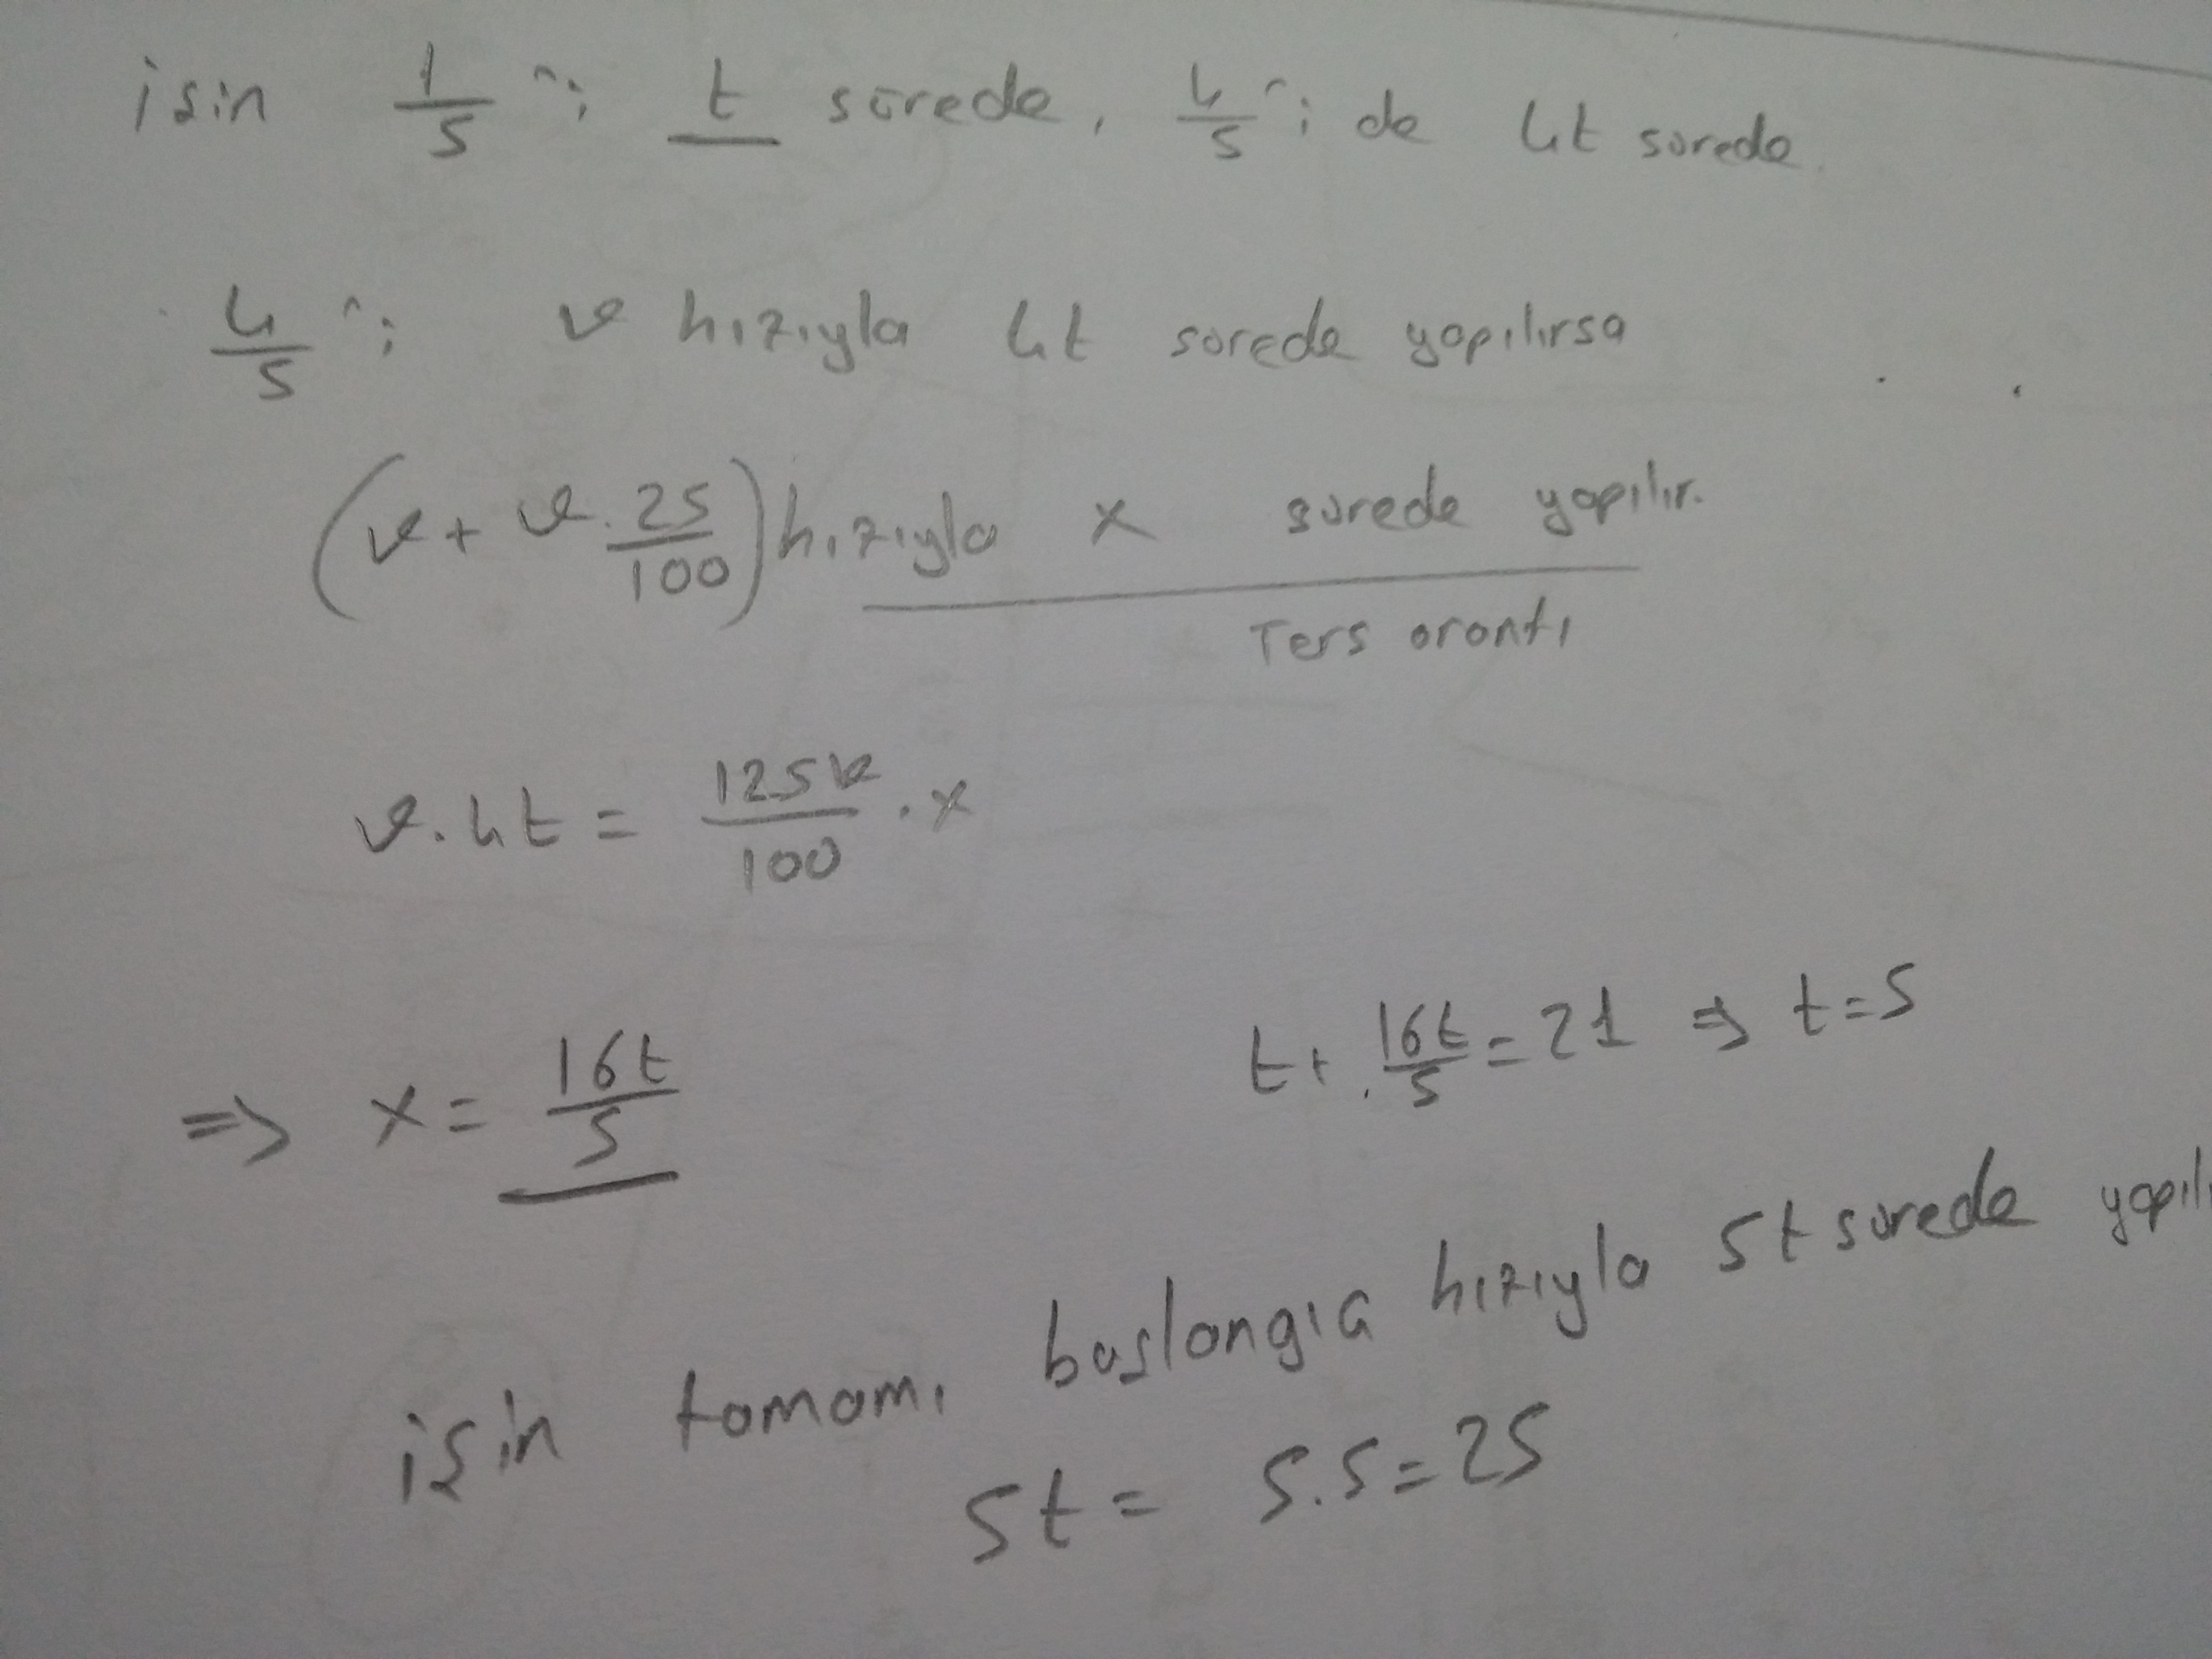 işin 1/5 'i t sürede, 4/5 'i de 4t sürede.
4/5 'i v hızıyla 4t sürede yapılırsa
(v + v.25/100) hızıyla x sürede yapılır.
Ters orantı
v.4t = 125v/100 .x
⇒ x = 16t/5
t + 16t/5 = 21 ⇒ t=5
işin tamamı başlangıç hızıyla 5t sürede yapılı
5t = 5.5=25